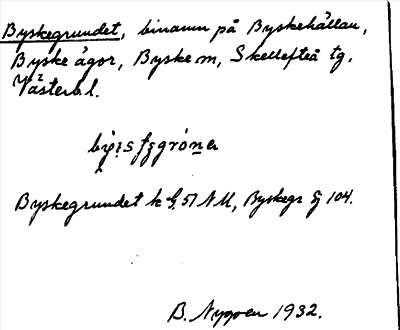 Byskegrundet, binamn på Byskehällan,
Byske ägor, Byske sn, Skellefteå tg,
Västerb. l.
Byskegrundet k G. 51 NU, Byskegr §104.
B. Nygren 1932.